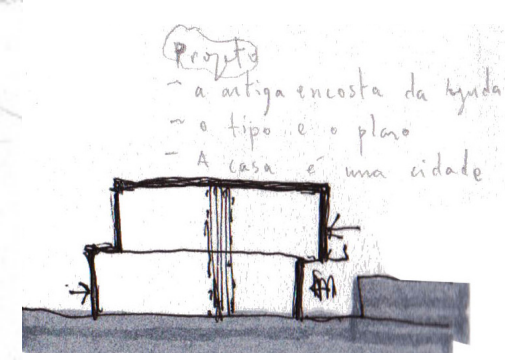 Projeto
- a antiga encosta da Ajuda
- o tipo e o plano
- A casa é uma cidade